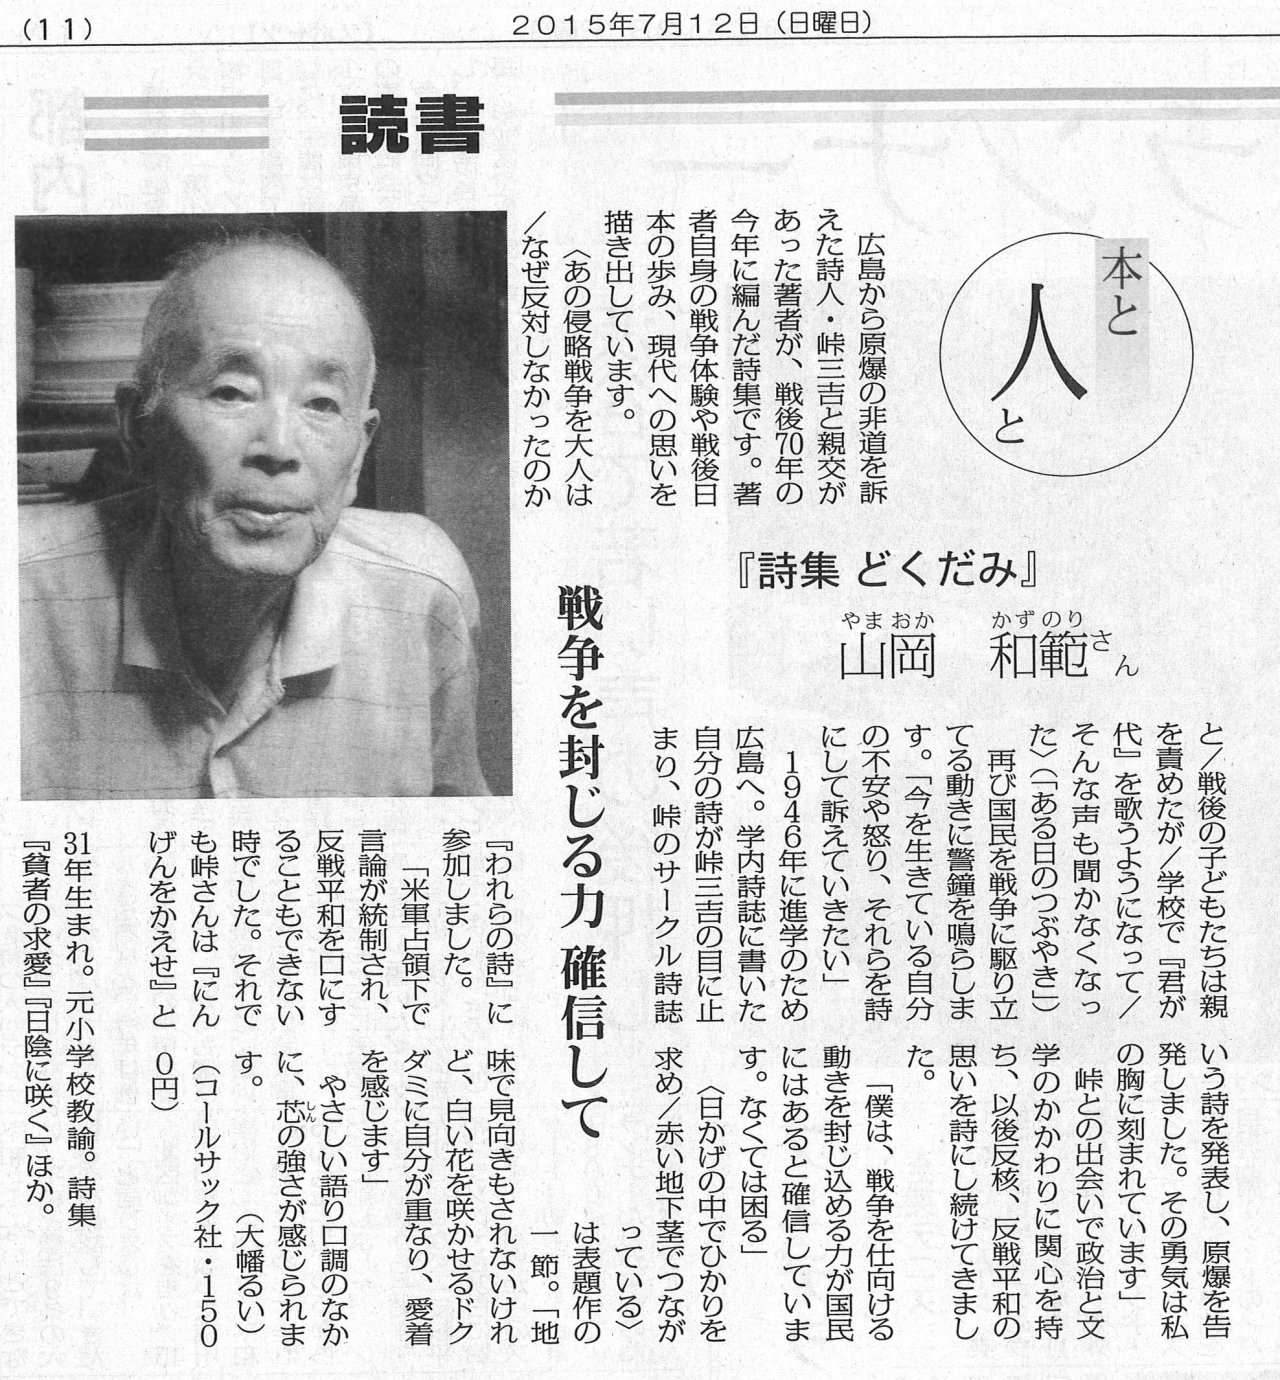 (11)
2015年7月12日（日曜日）
読書
本と
人
と
『詩集 どくだみ』
やまおか かずのり
山岡 和範さん
戦争を封じる力 確信して
広島から原爆の非道を訴
えた詩人・峠三吉と親交が
あった著者が、戦後70年の
今年に編んだ詩集です。著
者自身の戦争体験や戦後日
本の歩み、現代への思いを
描き出しています。
〈あの侵略戦争を大人は
／なぜ反対しなかったのか
と／戦後の子どもたちは親
を責めたが／学校で『君が
代』を歌うようになって／
そんな声も聞かなくなっ
た〉（「ある日のつぶやき」）
再び国民を戦争に駆り立
てる動きに警鐘を鳴らしま
す。「今を生きている自分
の不安や怒り、それらを詩
にして訴えていきたい」
1946年に進学のため
広島へ。学内詩誌に書いた
自分の詩が峠三吉の目に止
まり、峠のサークル詩誌
『われらの詩』に
参加しました。
「米軍占領下で
言論が統制され、
反戦平和を口にす
ることもできない
時でした。それで
も峠さんは『にん
げんをかえせ』と
いう詩を発表し、原爆を告
発しました。その勇気は私
の胸に刻まれています」
峠との出会いで政治と文
学のかかわりに関心を持
ち、以後反核、反戦平和の
思いを詩にし続けてきまし
た。
「僕は、戦争を仕向ける
動きを封じ込める力が国民
にはあると確信していま
す。なくては困る」
〈日かげの中でひかりを
求め／赤い地下茎でつなが
っている〉
は表題作の
一節。「地
味で見向きもされないけれ
ど、白い花を咲かせるドク
ダミに自分が重なり、愛着
を感じます」
やさしい語り口調のなか
に、芯しんの強さが感じられま
す。 （大幡るい）
（コールサック社・150
0円）
31年生まれ。元小学校教諭。詩集
『貧者の求愛』『日陰に咲く』ほか。